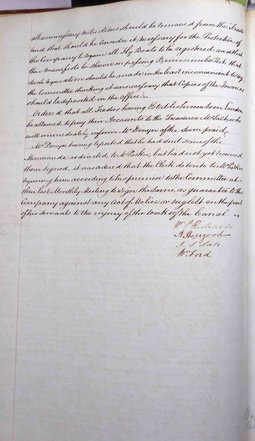 all unnecessary restrictions should be removed from the Trade
and that should be Consider it necessary for the Protection of
the Company to require all Fly Boats to be registered and that
their manifests be shewn on passing Branscombe Lock, that
the
the Committee thinking it unnecessary that Copies of the Invoices
should be deposited in the office
Ordered that all Traders having Establishments in London
be allowed to pay their Accounts to the Treasurer
will immediately inform Mr Denyer of the Sum paid
Mr Denyer having reported that he had sent some of the
Memoranda addressed to Mr Parker, but had not yet received
them signed, it was ordered that the Clerk do write to Mr Parker
requiring him according to his promise to the Committee at
their last Monthly Meeting to sign the same as guarantee to the
Company against any Act of Malice or neglect on the part
of his Servants to the injury of the Works of the Canal
Wm Richards
A Hopgood
J. S
Wm Ford